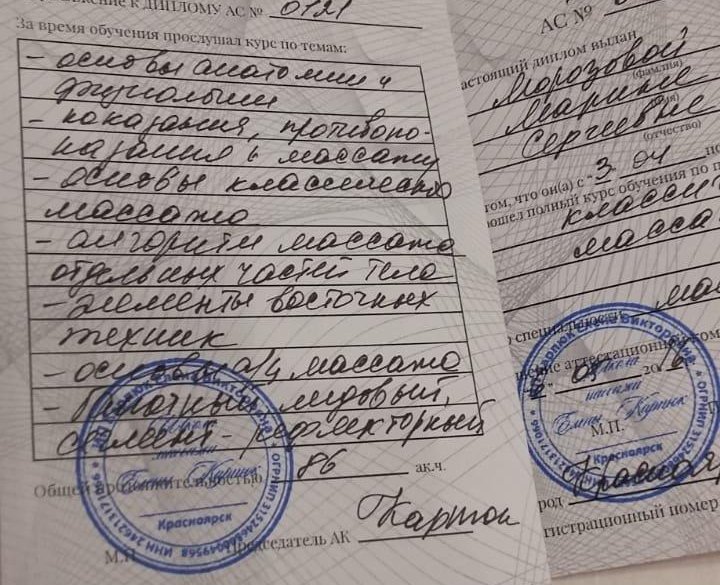 к ДИПЛОМУ АС № 0121
За время обучения прослушал курс по темам:
- основы анатомии и
физиологии
- показания, противопо-
казания к массажу
- основы классического
массажа
- алгоритм массажа
отдельных частей тела
- элементы восточных
техник
- основы а/ц массажа
- баночный, медовый,
сегмент-рефлекторный
Общей продолжительностью 86 ак.ч.
М.П. Председатель АК
Школа
массажа
Елены Карпюк
Красноярск
АС №
астоящий диплом выдан
Морозовой
(фамилия)
Марине
Сергеевне
(отчество)
том, что он(а) с - 3. 04
полный курс обучения по
класси
масса
специальности мас
аттестационной ком
05 2016
М.П.
Школа
массажа
Елены Карпюк
Красноярск
род Краснояр
гистрационный номер